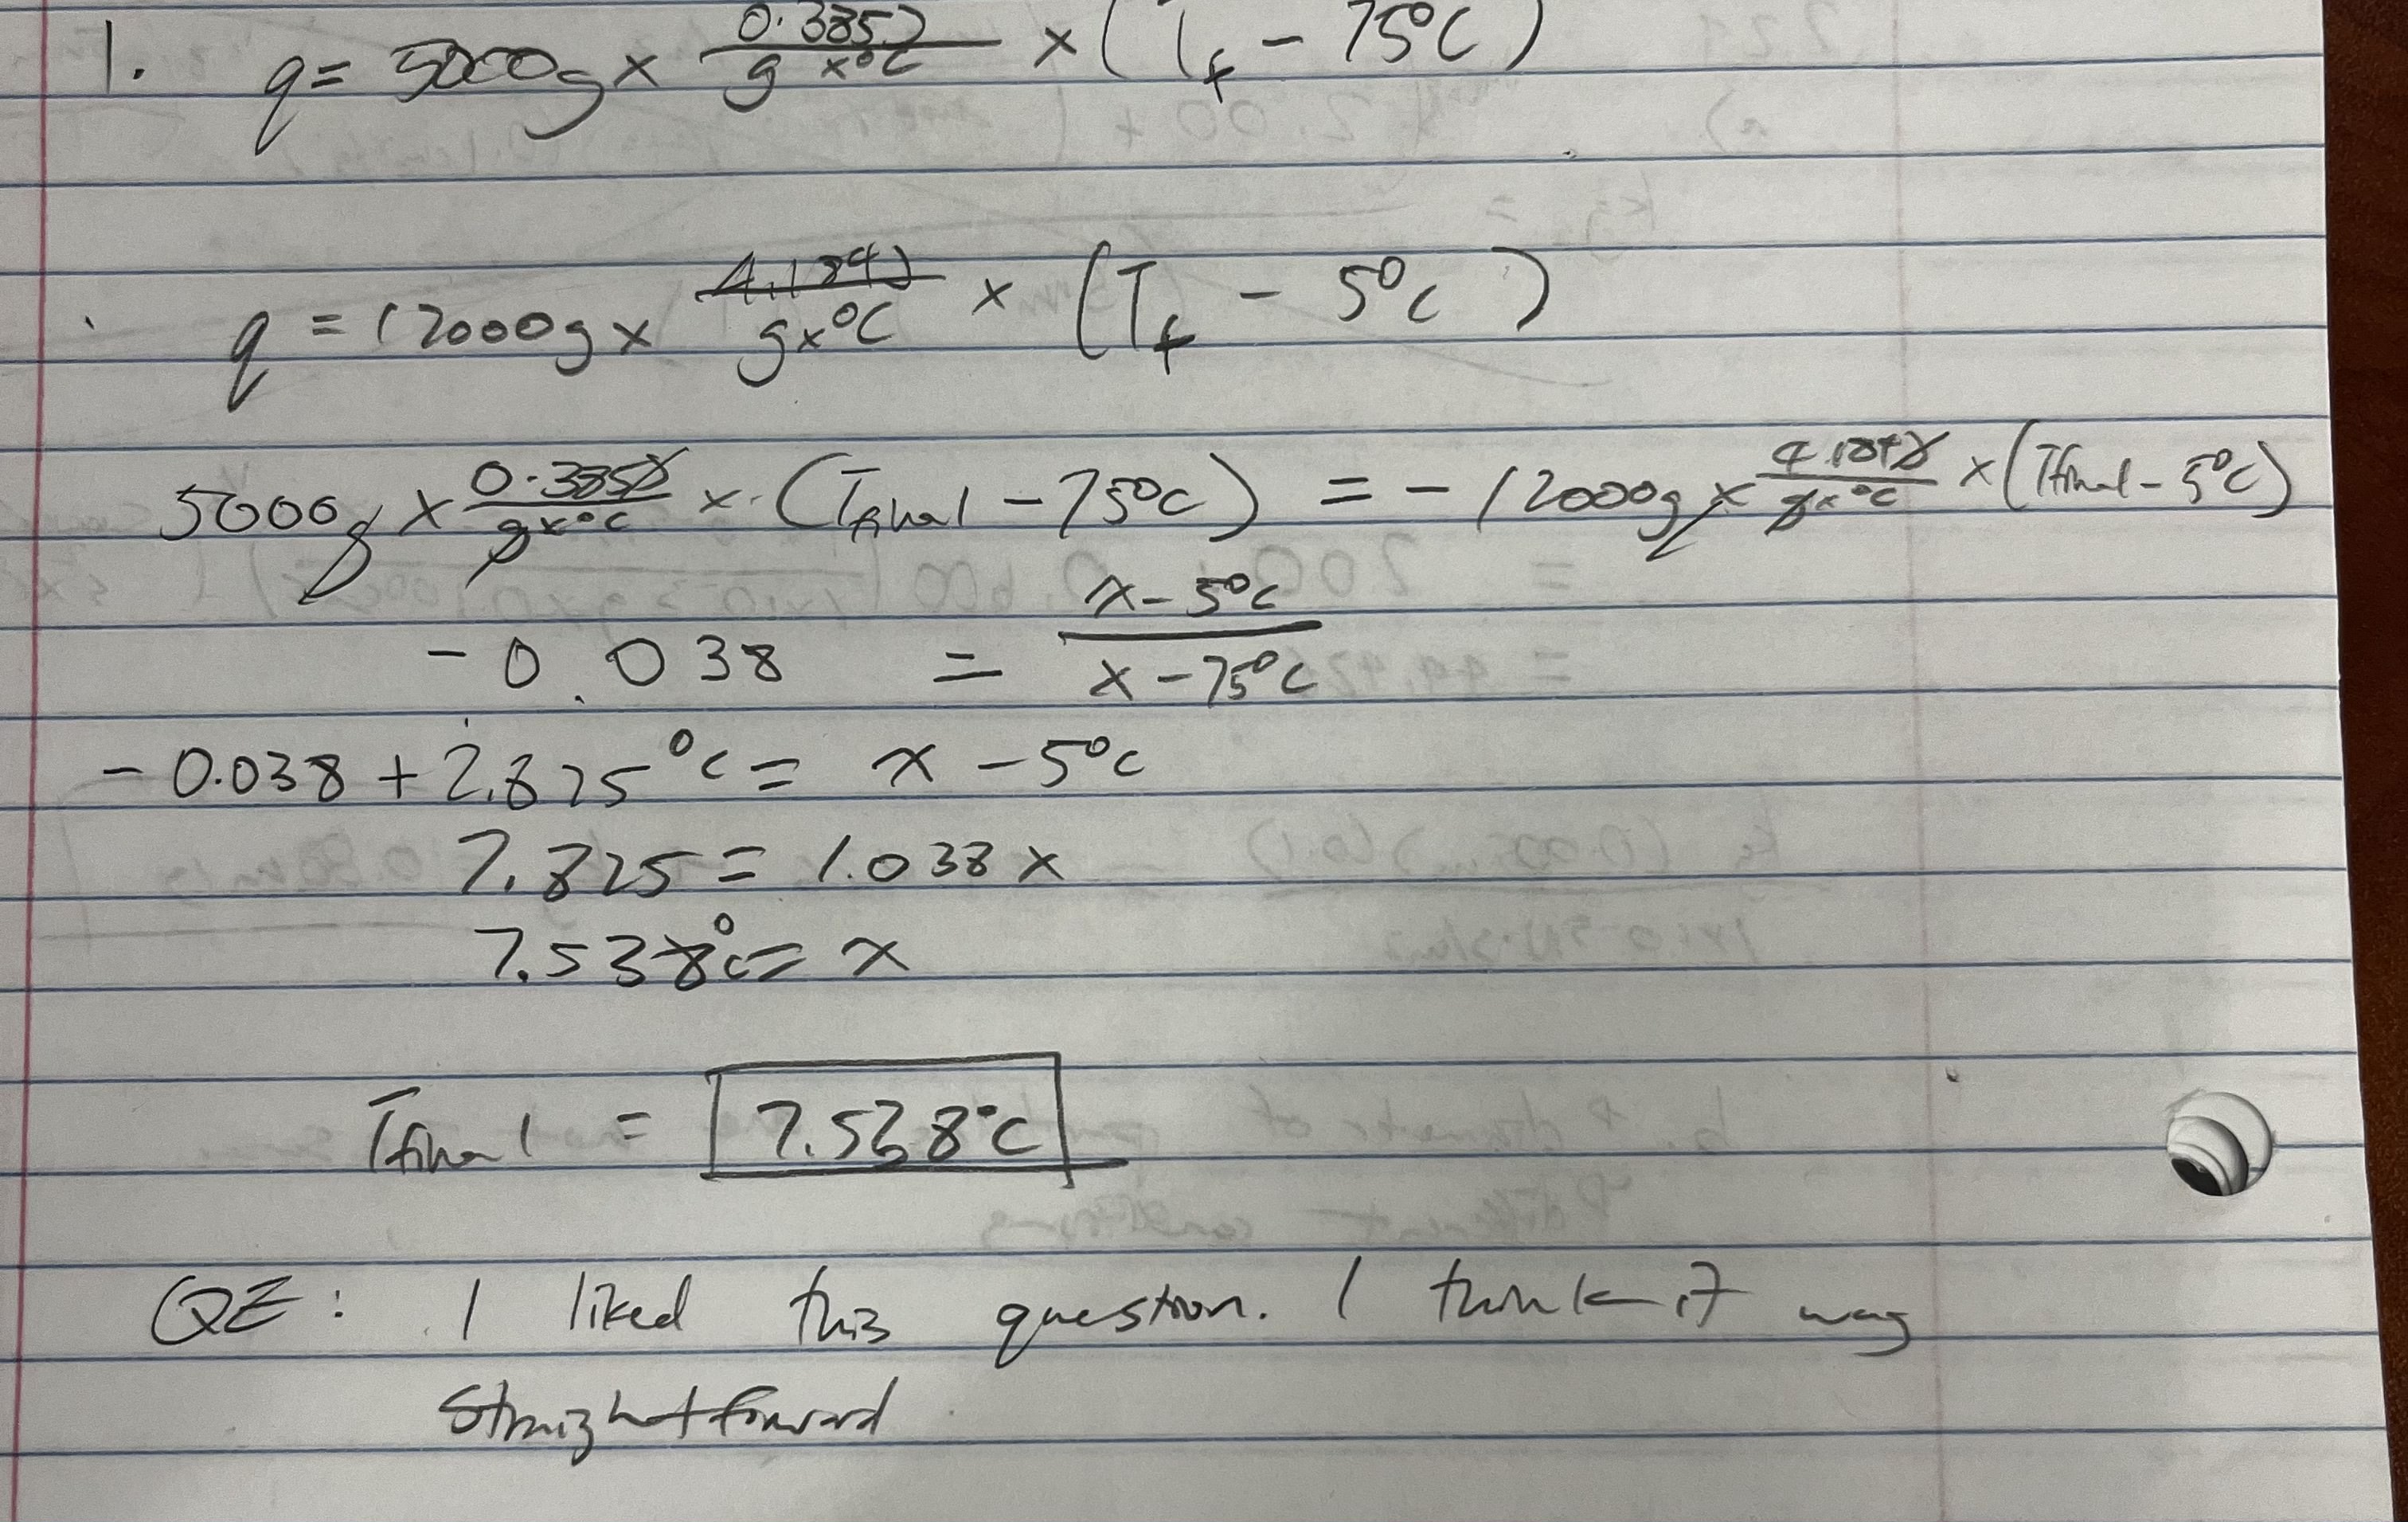 1. q = 5000g x 0.385J / g x °C x (Tf - 75°C)
q = 12000g x 4.184J / g x °C x (Tf - 5°C)
5000g x 0.385J / g x °C x (Tfinal - 75°C) = - 12000g x 4.184J / g x °C x (Tfinal - 5°C)
- 0.038 = x - 5°C / x - 75°C
- 0.038 + 2.825°C = x - 5°C
7.825 = 1.038x
7.538°C = x
Tfinal = 7.538°C
QE: I liked this question. I think it was
straightforward